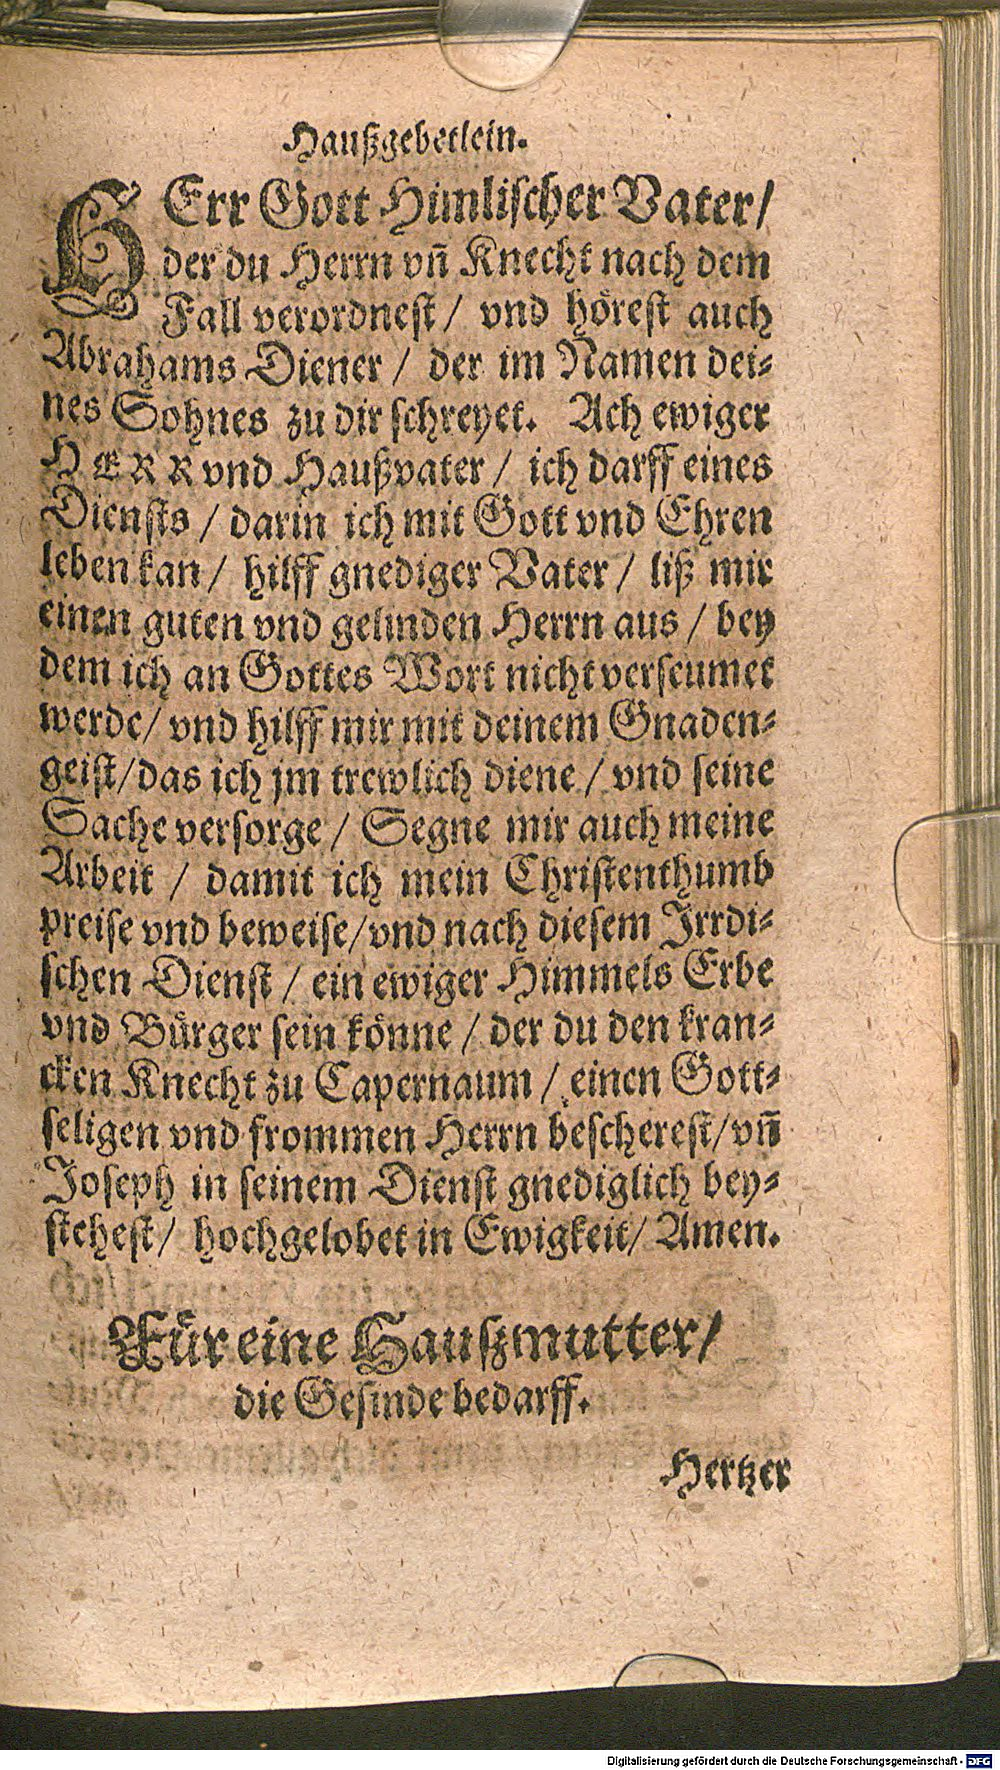 Haußgebetlein.
HErr Gott Himlischer Vater/
der du Herrn vñ Knecht nach dem
Fall verordnest / vnd hörest auch
Abrahams Diener / der im Namen dei-
nes Sohnes zu dir schreyet. Ach ewiger
HERR vnd Haußvater / ich darff eines
Diensts / darin ich mit Gott vnd Ehren
leben kan / hilff gnediger Vater / liß mir
einen guten vnd gelinden Herrn aus / bey
dem ich an Gottes Wort nicht verseumet
werde/ vnd hilff mir mit deinem Gnaden-
geist/das ich jm trewlich diene / vnd seine
Sache versorge / Segne mir auch meine
Arbeit / damit ich mein Christenthumb
preise vnd beweise/vnd nach diesem Irrdi-
schen Dienst / ein ewiger Himmels Erbe
vnd Bürger sein könne / der du den kran-
cken Knecht zu Capernaum / einen Gott-
seligen vnd frommen Herrn bescherest/vñ
Joseph in seinem Dienst gnediglich bey-
stehest/ hochgelobet in Ewigkeit/ Amen.
Für eine Haußmutter/
die Gesinde bedarff.
Hertzer
Digitalisierung gefördert durch die Deutsche Forschungsgemeinschaft - DFG